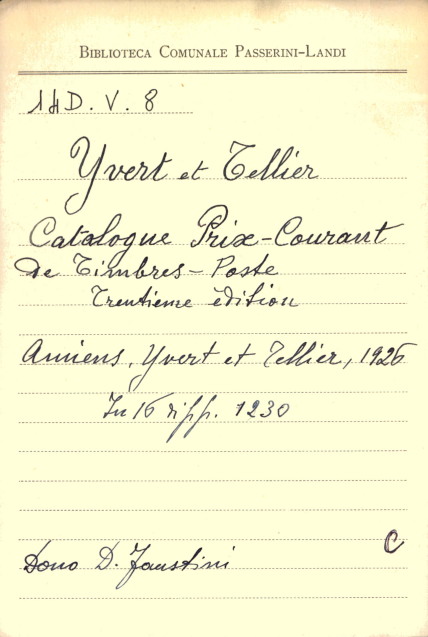 BIBLIOTECA COMUNALE PASSERINI-LANDI
14 D. V. 8
Yvert et Tellier
Catalogue Prix-Courant
de Timbres-Poste
Trentieme èdition
Amiens, Yvert et Tellier, 1926
In 16 di pp. 1230
C
Dono D. Faustini